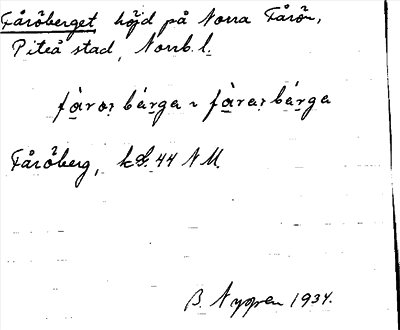 Fåröberget höjd på Norra Fårön,
Piteå stad, Norrb. l.
fàrọ bárga ~ fàrạ bárga
Fåröberg, kbl. 44 NM.
B. Nygren 1934.